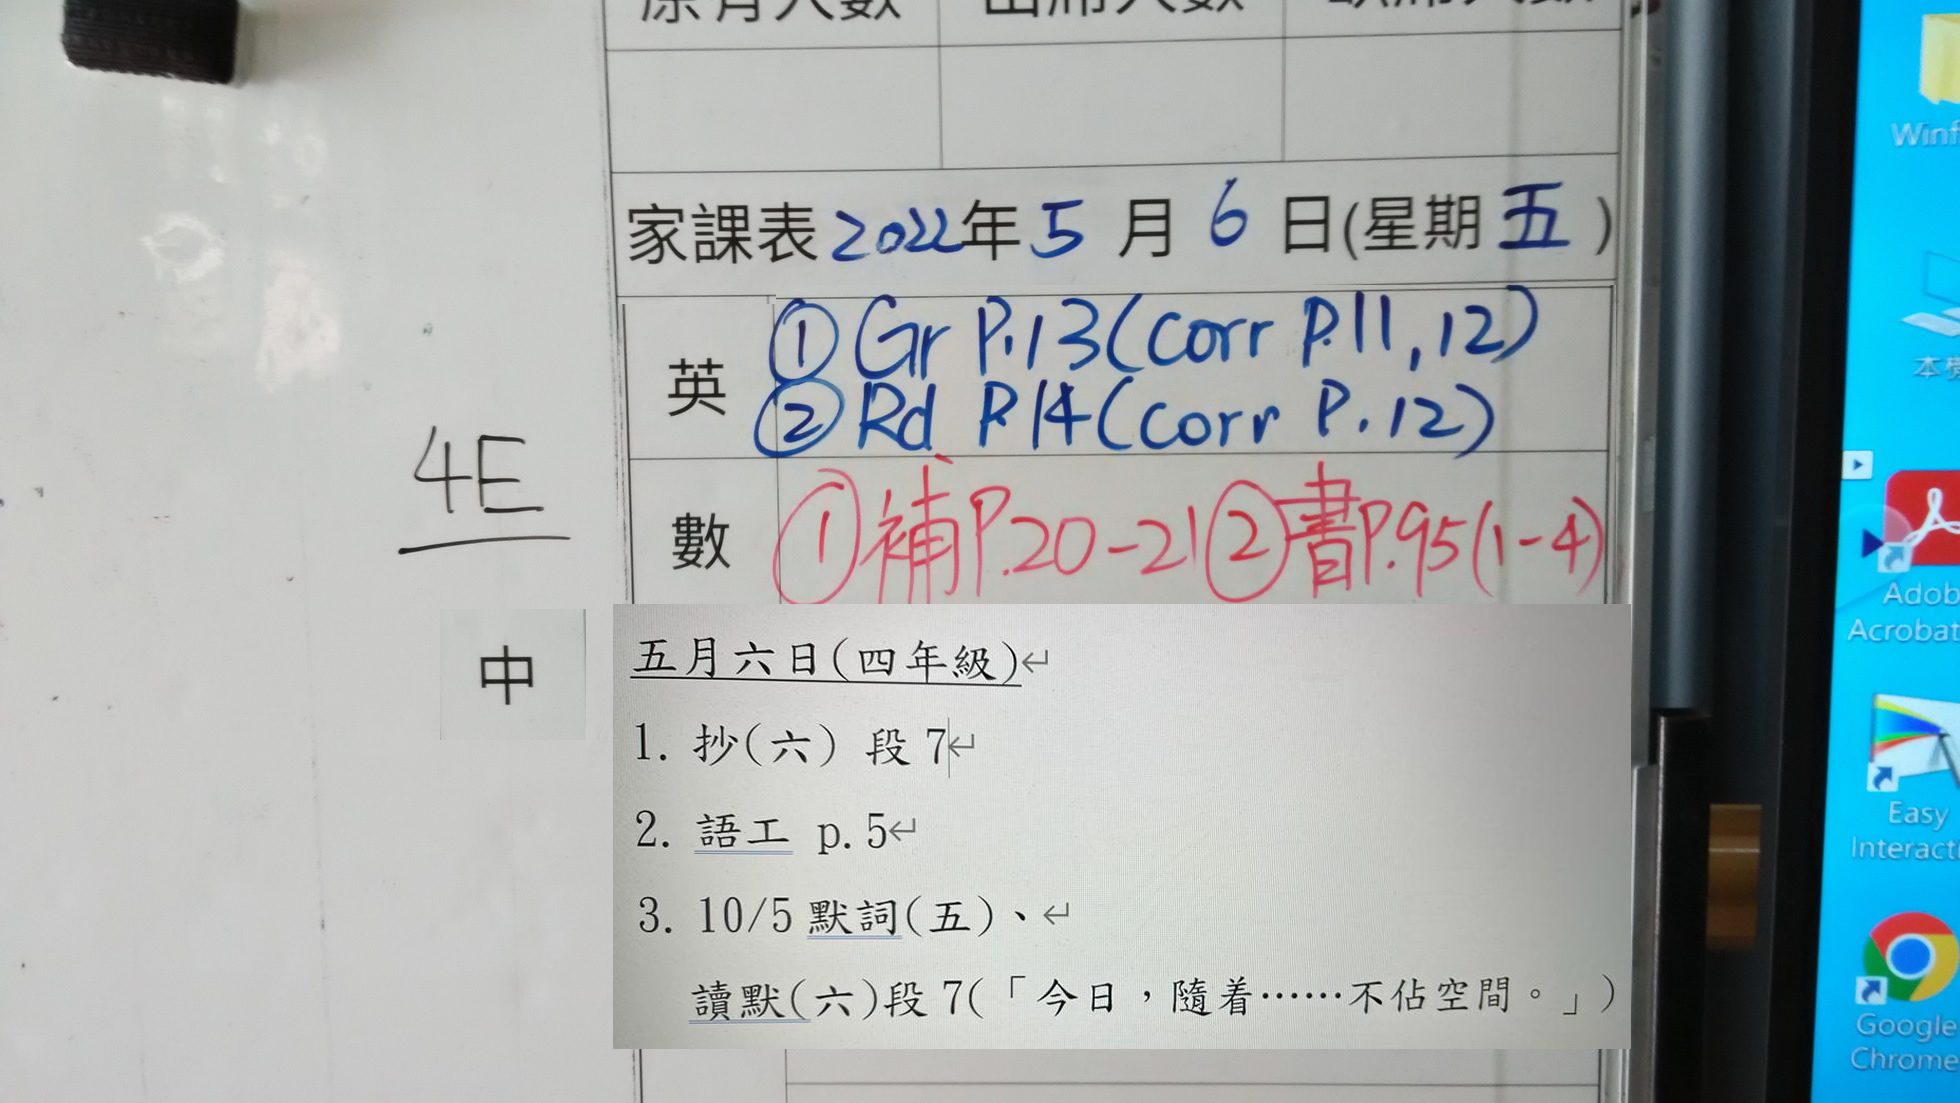 原有人數 出席人數 缺席人數
家課表 2022年 5 月 6 日(星期 五 )
英
① Gr P.13(corr P.11,12)
② Rd P.14(corr P.12)
4E
數
①補P.20-21②書P.95(1-4)
中
五月六日(四年級)↵
1. 抄(六) 段 7↵
2. 語工 p.5↵
3. 10/5 默詞(五)、↵
讀默(六)段 7(「今日，隨着⋯⋯不佔空間。」)
Adob
Acrobat
Easy
Interacti
Google
Chrome